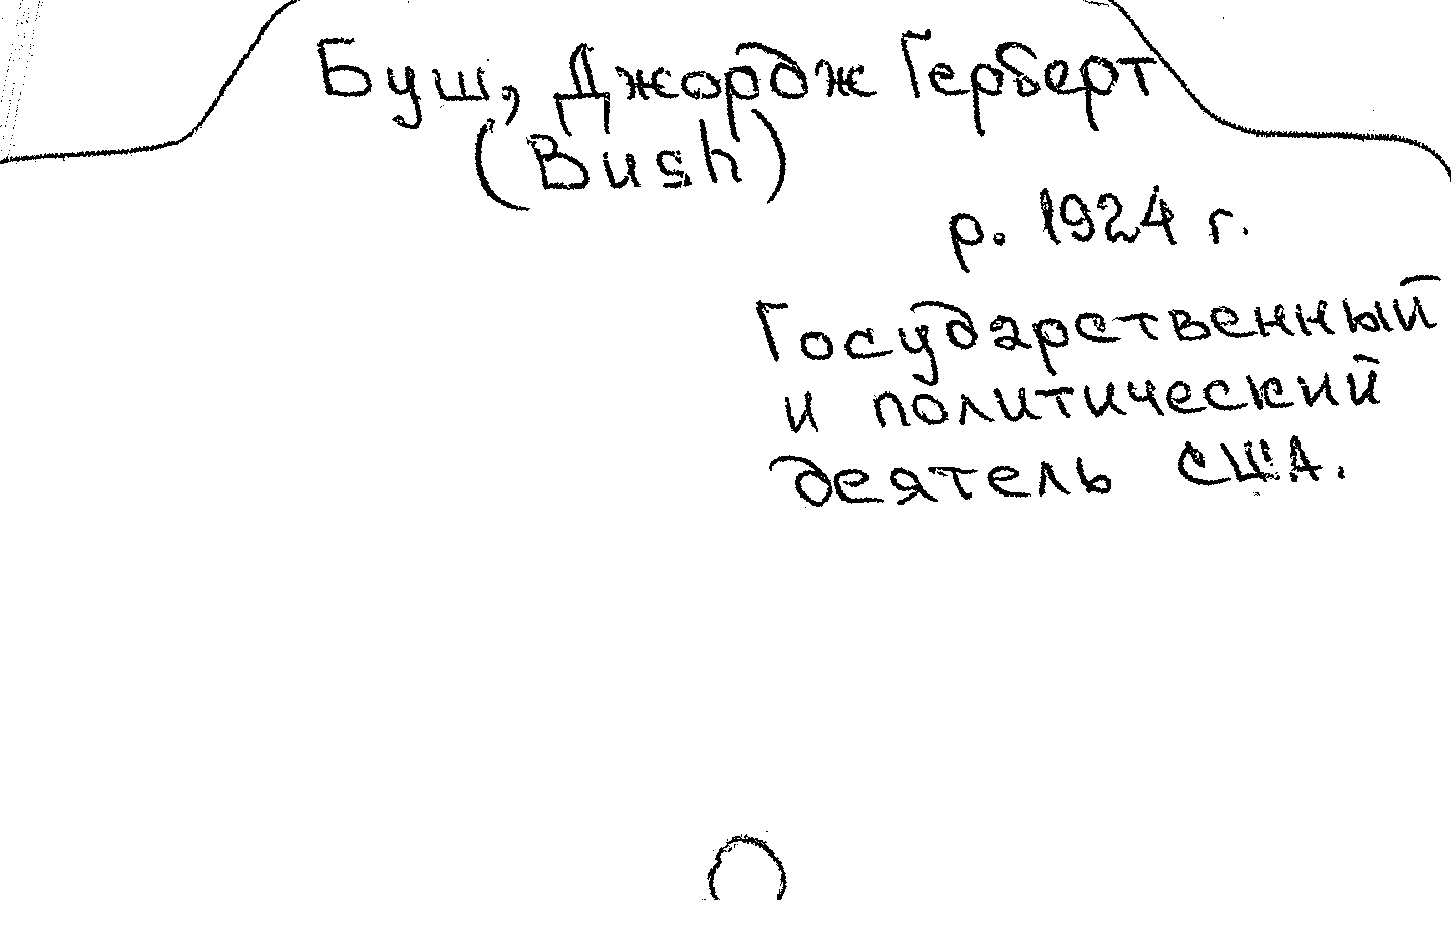 Буш, Джордж Герберт
(Bush)
р. 1924 г.
Государственный
и политический
деятель США.